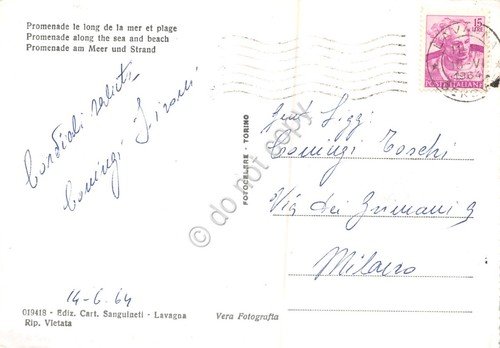 Promenade le long de la mer et plage
Promenade along the sea and beach
Promenade am Meer und Strand
15
1964
ITALIANE
Cordiali saluti
Comingi
FOTOCELERE - TORINO
do not copy
Comingi Toschi
Via dei 9
Milano
14-6.64
019418 - Ediz. Cart. Sanguineti - Lavagna
Rip. Vietata
Vera Fotografia